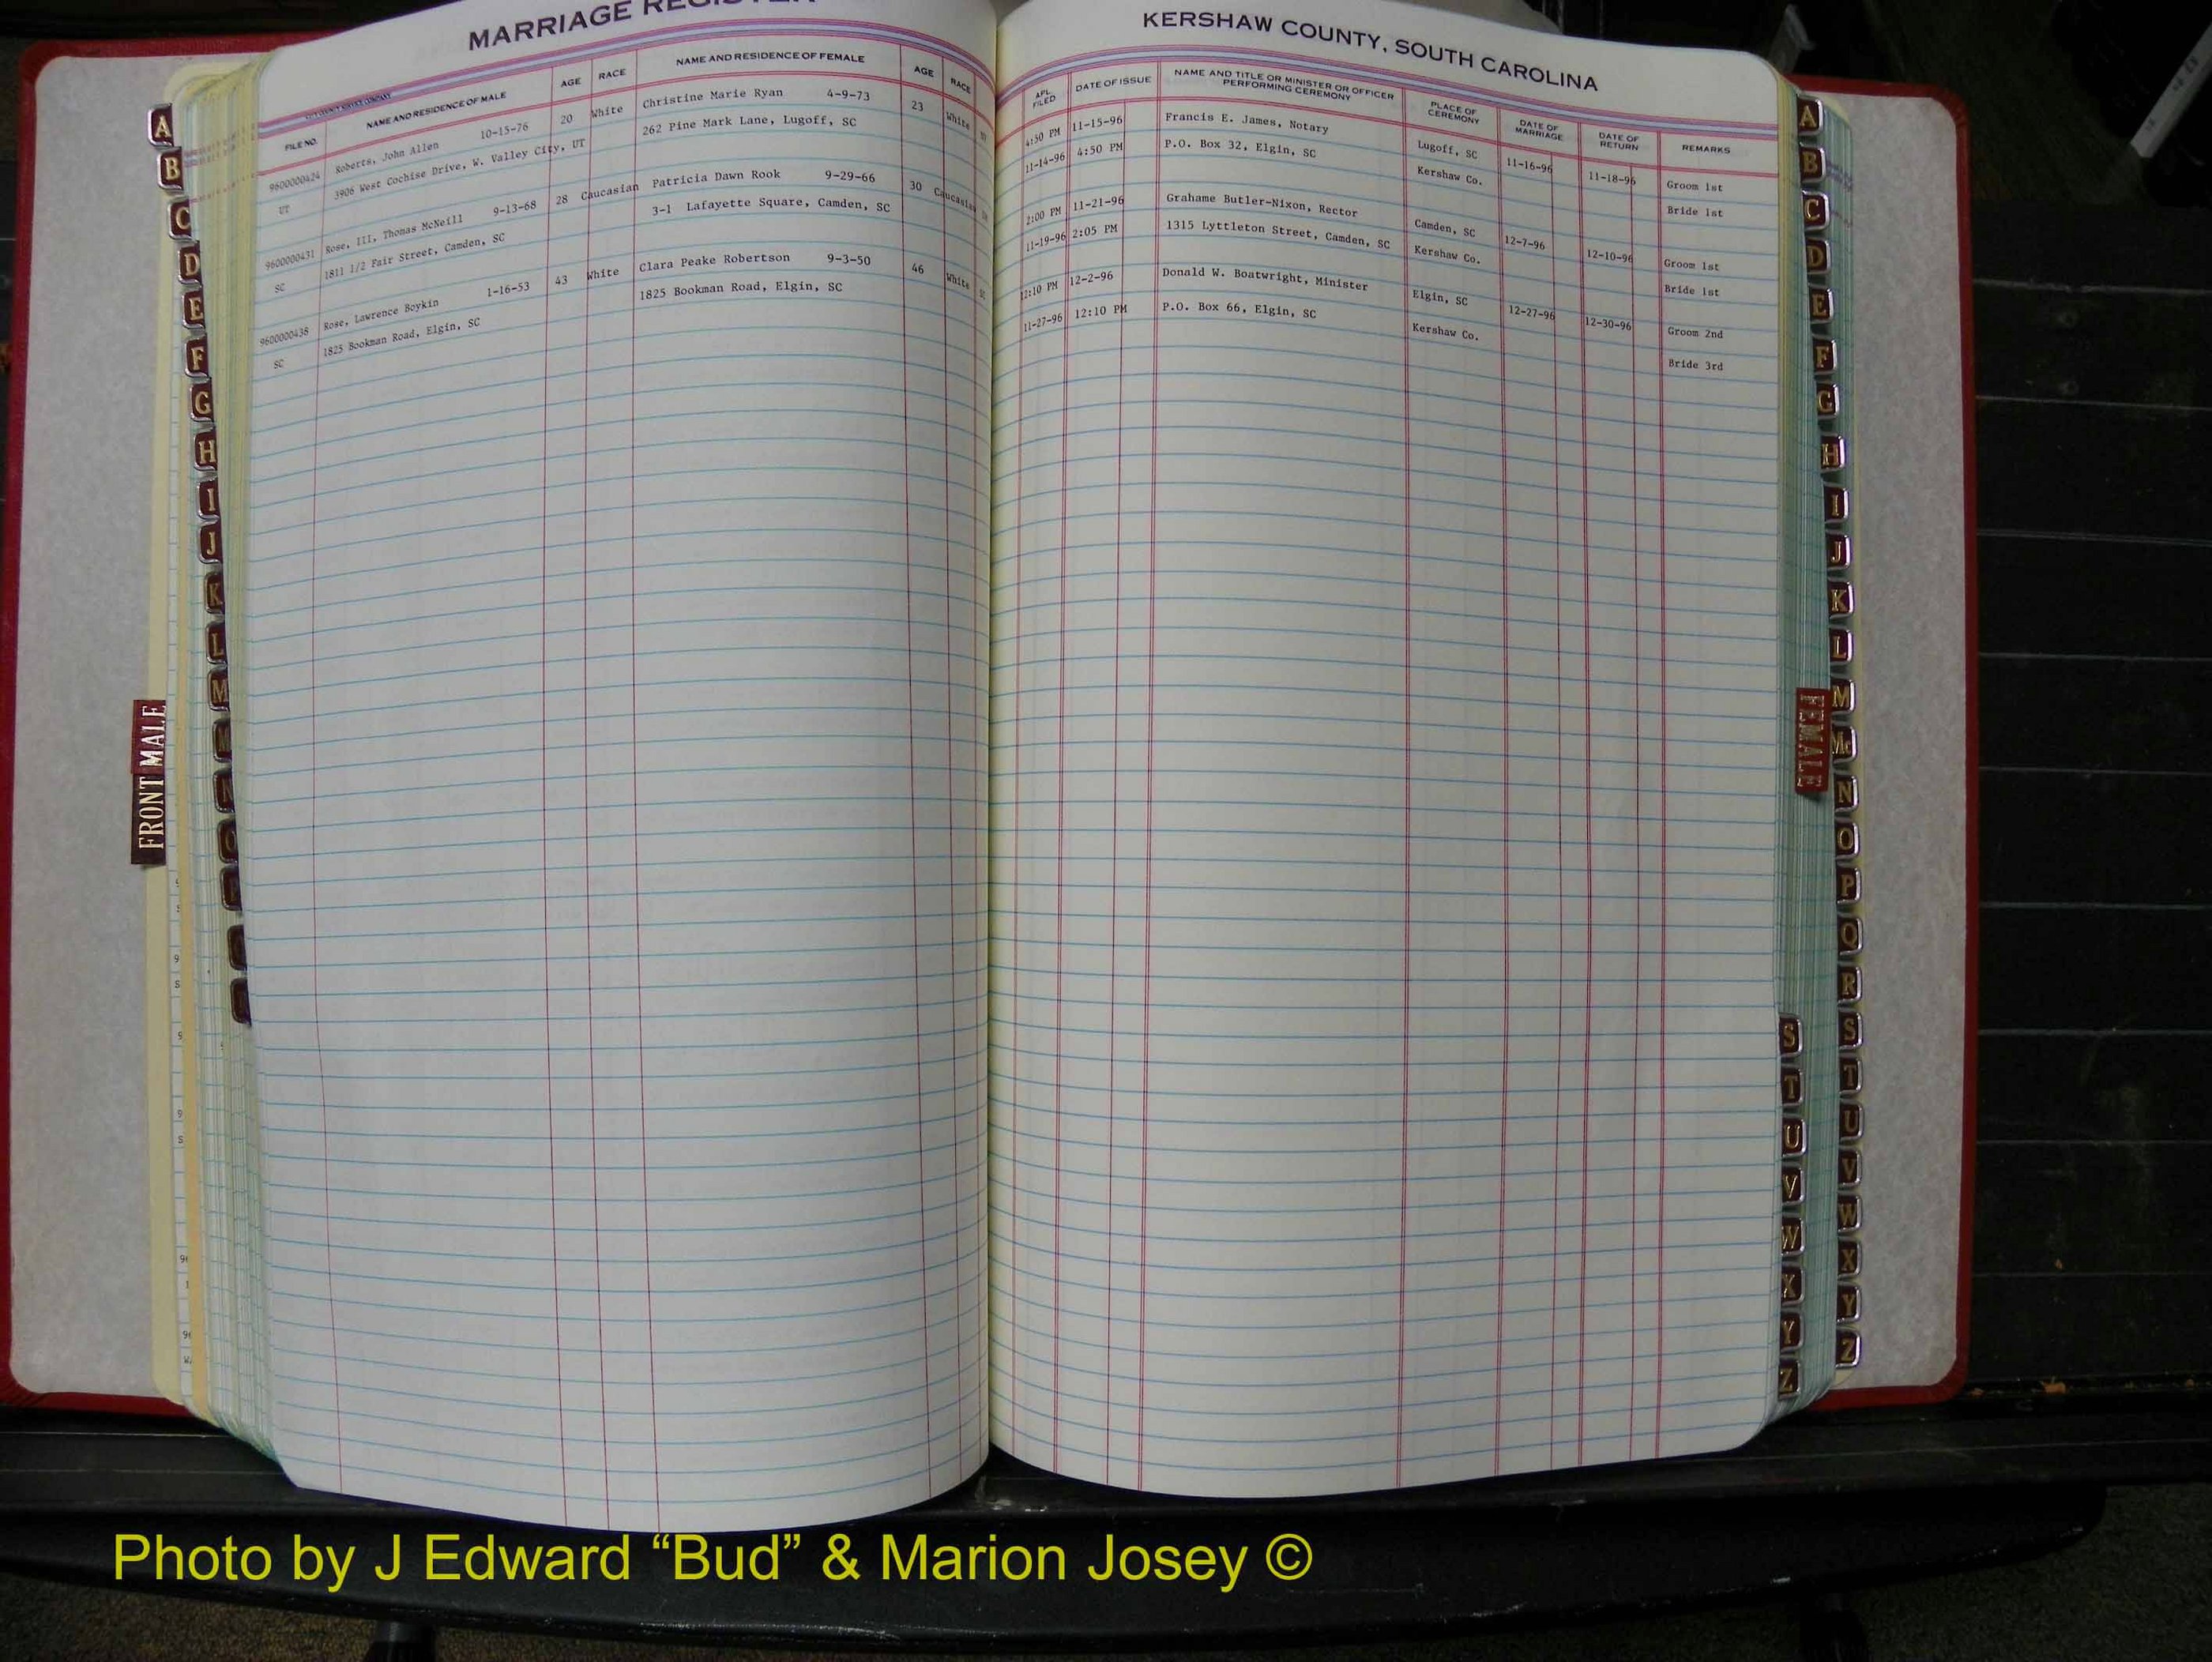 MARRIAGE REGISTER
NAME AND RESIDENCE OF MALE AGE RACE NAME AND RESIDENCE OF FEMALE AGE RACE
FILE NO.
9600000424 Roberts, John Allen 10-15-76 20 White Christine Marie Ryan 4-9-73 23 White
UT 3906 West Cochise Drive, W. Valley City, UT 262 Pine Mark Lane, Lugoff, SC
9600000431 Rose, III, Thomas McNeill 9-13-68 28 Caucasian Patricia Dawn Rook 9-29-66 30 Caucasian
SC 1811 1/2 Fair Street, Camden, SC 3-1 Lafayette Square, Camden, SC
9600000438 Rose, Lawrence Boykin 1-16-53 43 White Clara Peake Robertson 9-3-50 46 White
SC 1825 Bookman Road, Elgin, SC 1825 Bookman Road, Elgin, SC
KERSHAW COUNTY, SOUTH CAROLINA
APL. FILED DATE OF ISSUE NAME AND TITLE OR MINISTER OR OFFICER PERFORMING CEREMONY PLACE OF CEREMONY DATE OF MARRIAGE DATE OF RETURN REMARKS
4:30 PM 11-15-96 Francis E. James, Notary Lugoff, SC 11-16-96 11-18-96 Groom 1st
11-14-96 4:50 PM P.O. Box 32, Elgin, SC Kershaw Co. Bride 1st
2:00 PM 11-21-96 Grahame Butler-Nixon, Rector Camden, SC 12-7-96 12-10-96 Groom 1st
11-19-96 2:05 PM 1315 Lyttleton Street, Camden, SC Kershaw Co. Bride 1st
12:10 PM 12-2-96 Donald W. Boatwright, Minister Elgin, SC 12-27-96 12-30-96 Groom 2nd
11-27-96 12:10 PM P.O. Box 66, Elgin, SC Kershaw Co. Bride 3rd
A
B
C
D
E
F
G
H
I
J
K
L
M
N
O
FRONT MALE
A
B
C
D
E
F
G
H
I
J
K
L
M
Mc
N
O
P
Q
R
S
T
U
V
W
X
Y
Z
FEMALE
S
T
U
V
W
X
Y
Z
Photo by J Edward “Bud” & Marion Josey ©